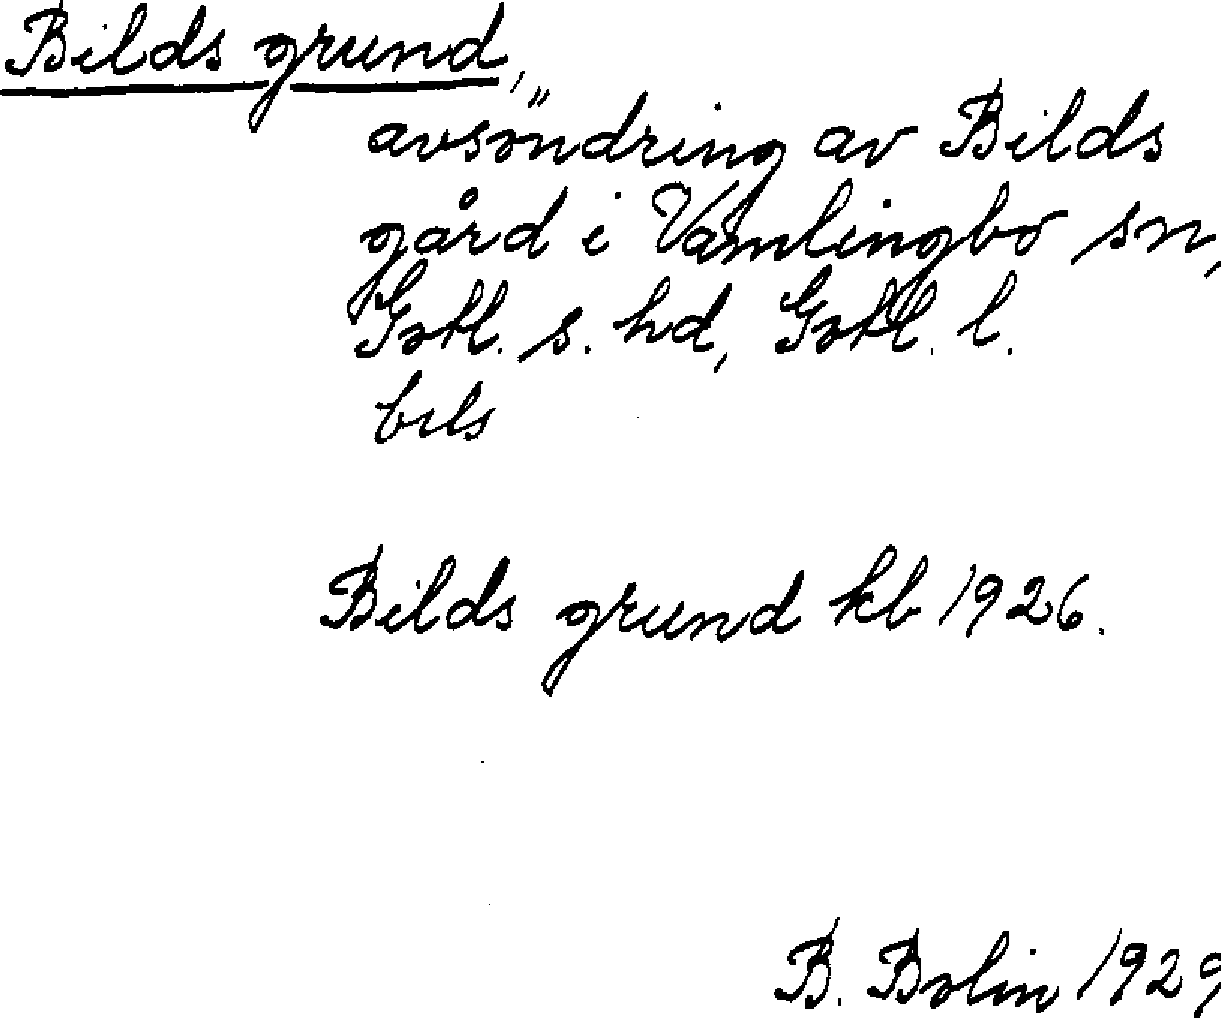 Bilds grund,
avsöndring av Bilds
gård i Vamlingbo sn,
Gotl. s. hd, Gotl. l.
bils
Bilds grund kb 1926.
B. Bolin 1929